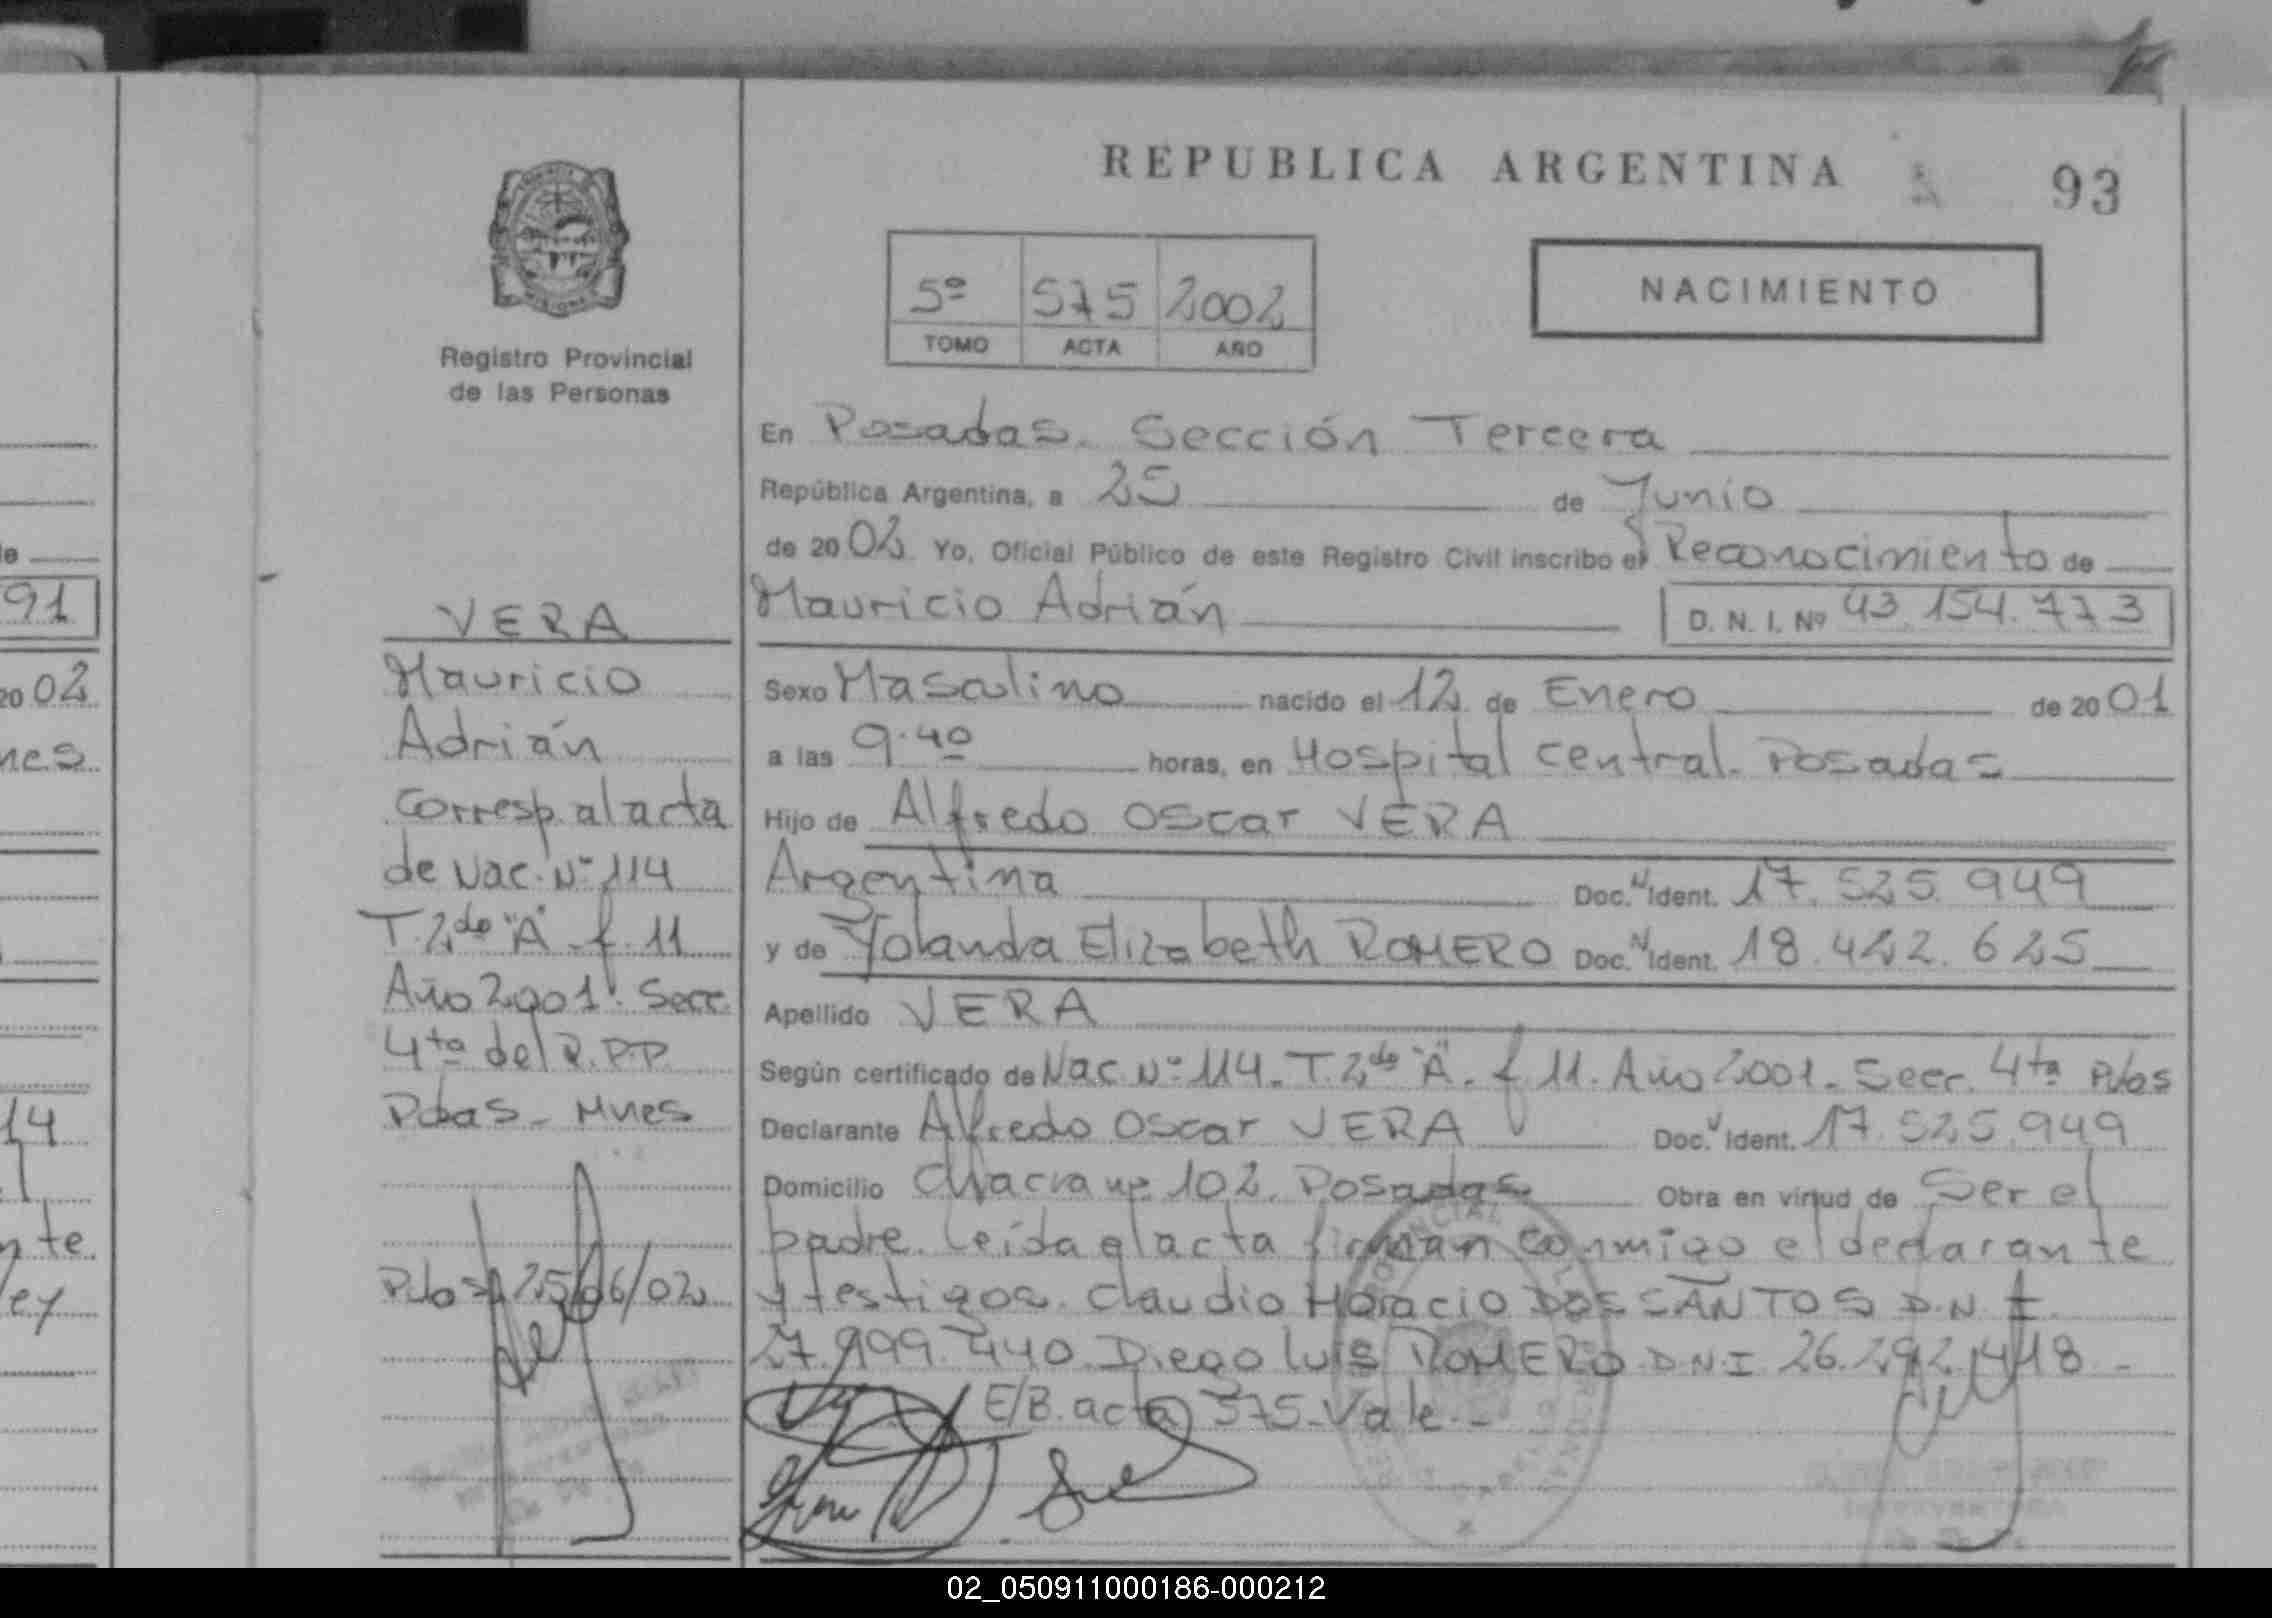 REPUBLICA ARGENTINA
93
5º 575 2002
TOMO ACTA AÑO
NACIMIENTO
Registro Provincial
de las Personas
VERA
Mauricio
Adrián
Corresp. al acta
de Nac. Nº 114
T. 2do "A" f. 11
Año 2001. Secc.
4ta del R.P.P.
Pdas - Mnes
Pdas 25/06/02
En Posadas. Sección Tercera
República Argentina, a 25 de Junio
de 2002 Yo, Oficial Público de este Registro Civil inscribo el Reconocimiento de
Mauricio Adrián D. N. I. Nº 43.154.773
Sexo Masculino nacido el 12 de Enero de 2001
a las 9.40 horas, en Hospital Central. Posadas
Hijo de Alfredo Oscar VERA
Argentina Doc. N Ident. 17.525.949
y de Yolanda Elizabeth ROMERO Doc. N Ident. 18.422.625
Apellido VERA
Según certificado de Nac. Nº 114. T. 2do "A". f 11. Año 2001. Secc. 4ta Pdas
Declarante Alfredo Oscar VERA Doc. Ident. 17.525.949
Domicilio Chacra nº 102. Posadas Obra en virtud de Ser el
padre. Leída el acta firman conmigo el declarante
y testigos. Claudio Horacio DOS SANTOS D.N.I.
27.999.440. Diego Luis ROMERO D.N.I 26.292.418 -
E/B. acta 575 - Vale. -
91
20 02
nes
14
nte
ey
02_050911000186-000212